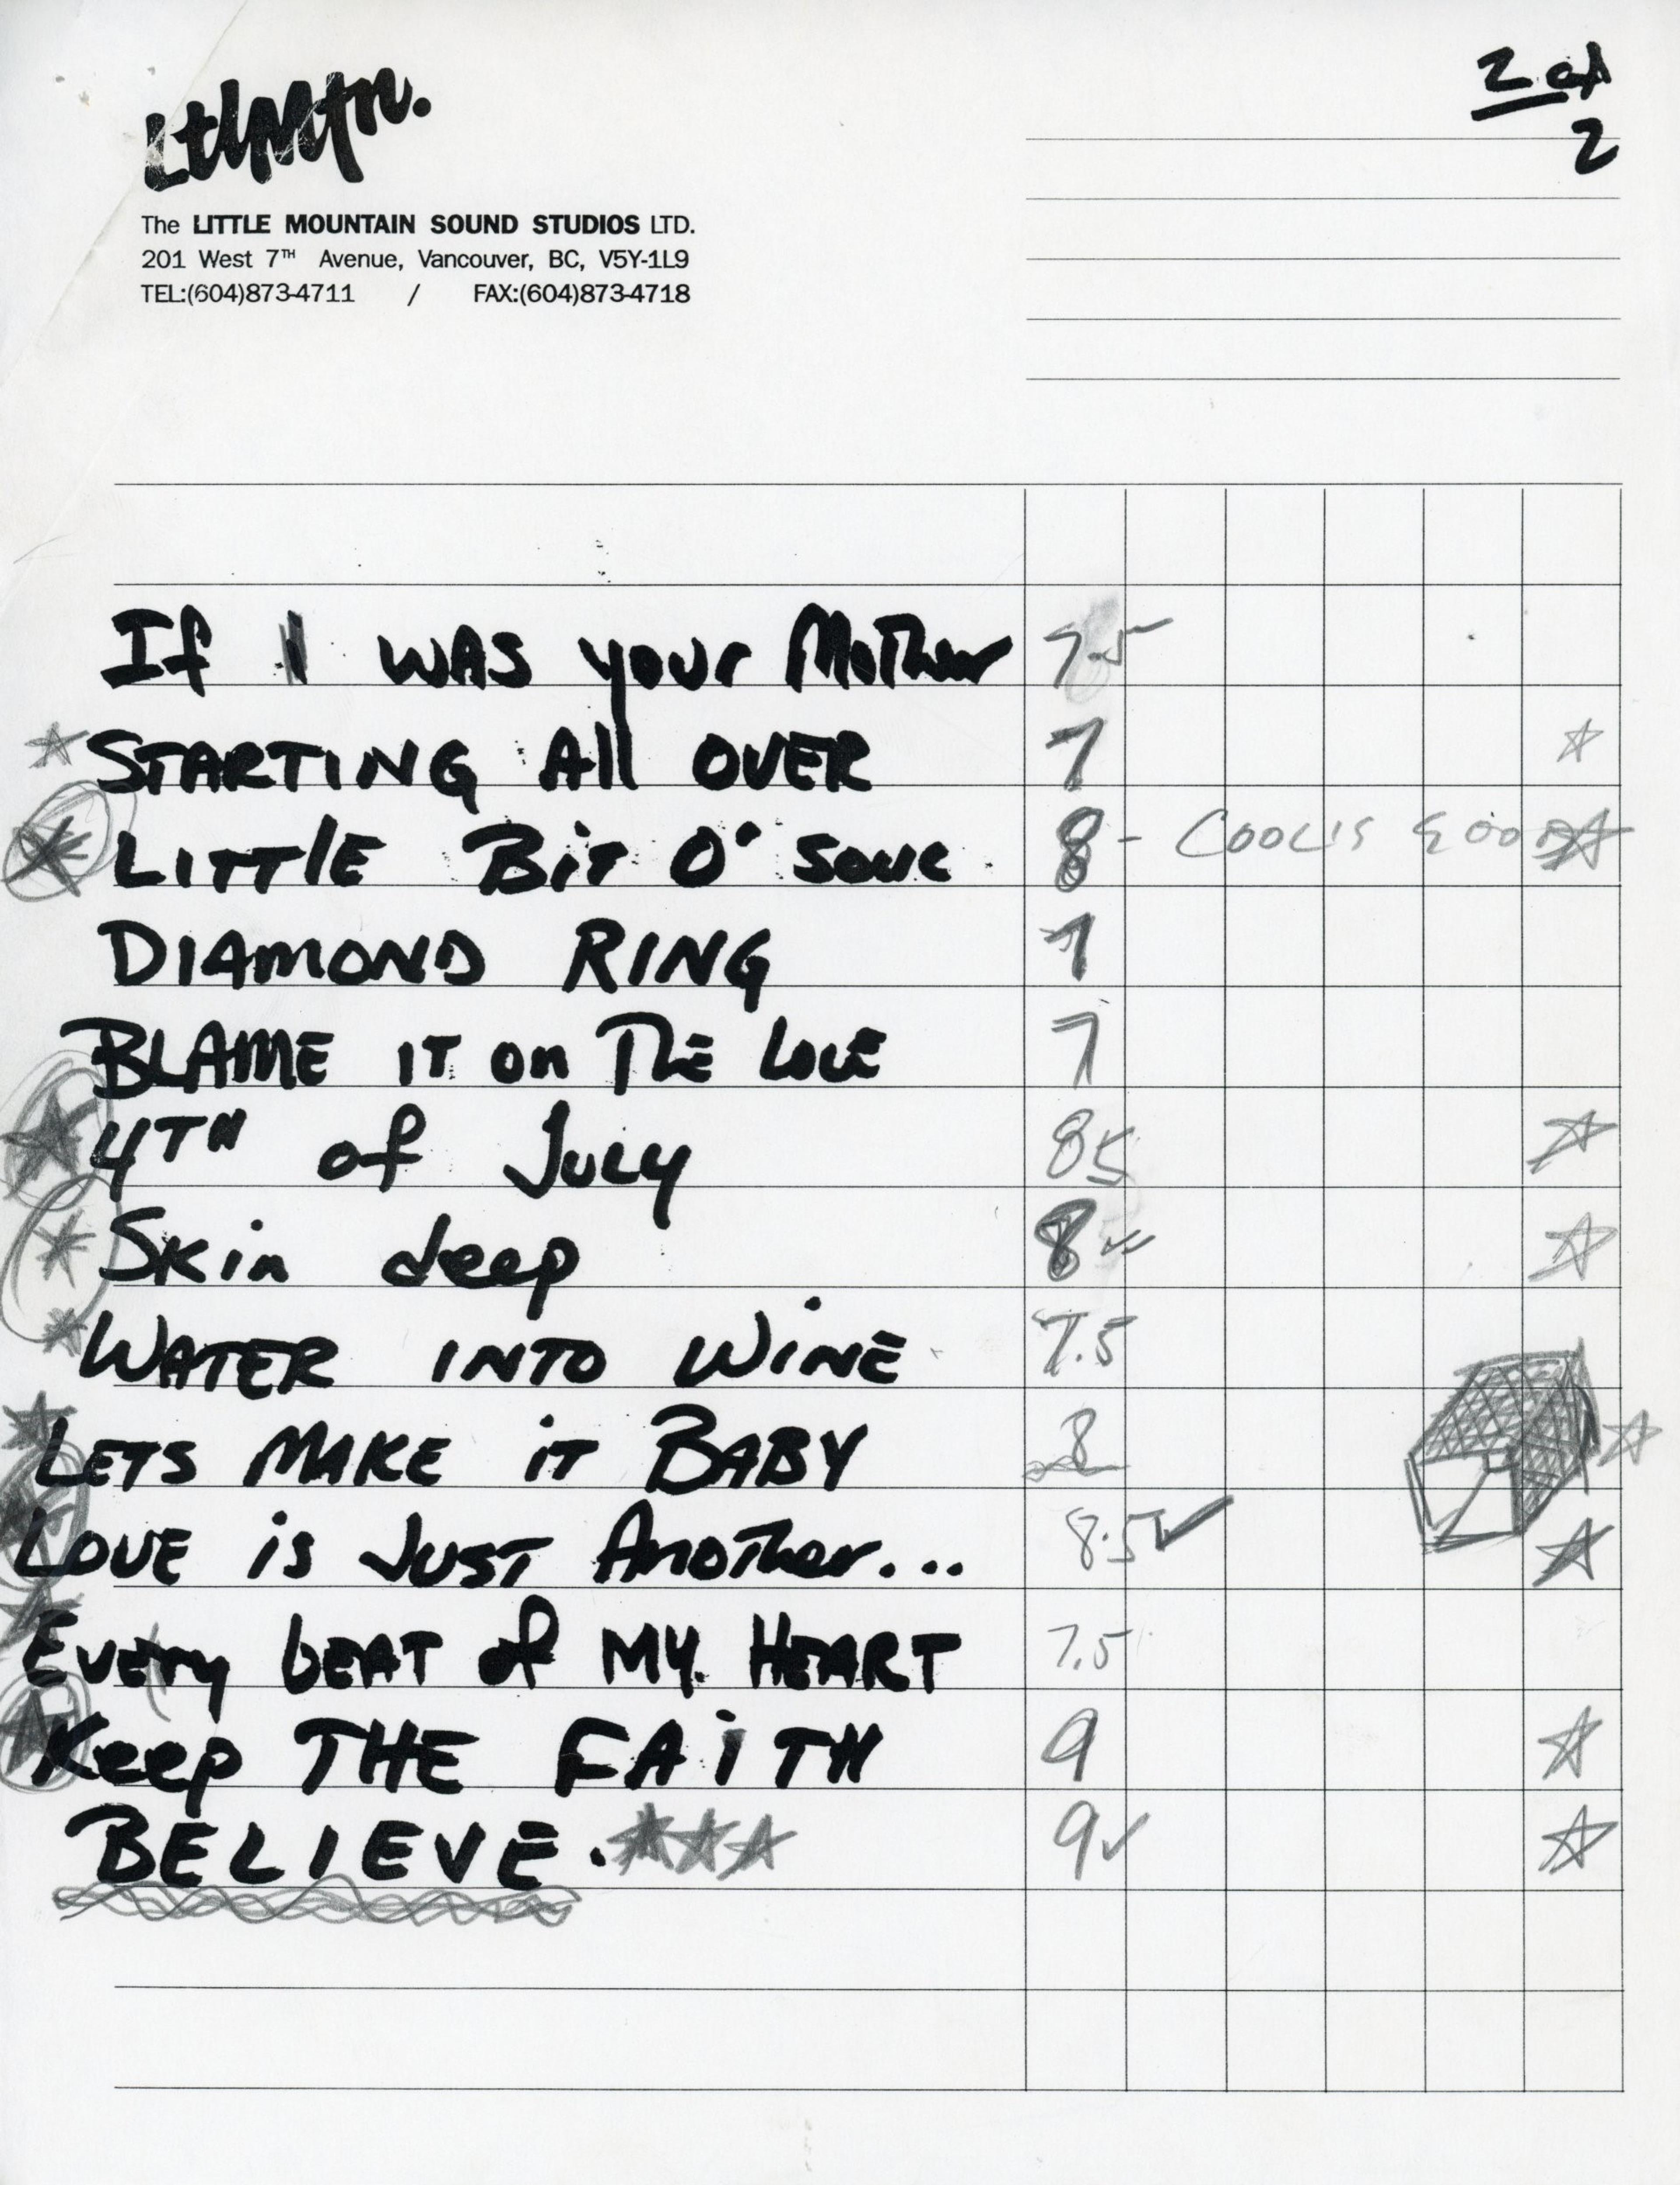 2 of
2
LtlMtn.
The LITTLE MOUNTAIN SOUND STUDIOS LTD.
201 West 7TH Avenue, Vancouver, BC, V5Y-1L9
TEL:(604)873-4711 / FAX:(604)873-4718
If I WAS your Mother 7.5
STARTING All OVER 7
LITTlE BiT O' SOUL 8 - COOL IS GOOD
DIAMOND RING 7
BLAME IT on THE LOVE 7
4TH of July 85
Skin deep 8
WATER INTO WiNE 7.5
LETS MAKE iT BABY 8
LOVE is JUST AnoTher... 8.5
Every bEAT of MY HEART 7.5
Keep THE FAiTH 9
BELIEVE. 9